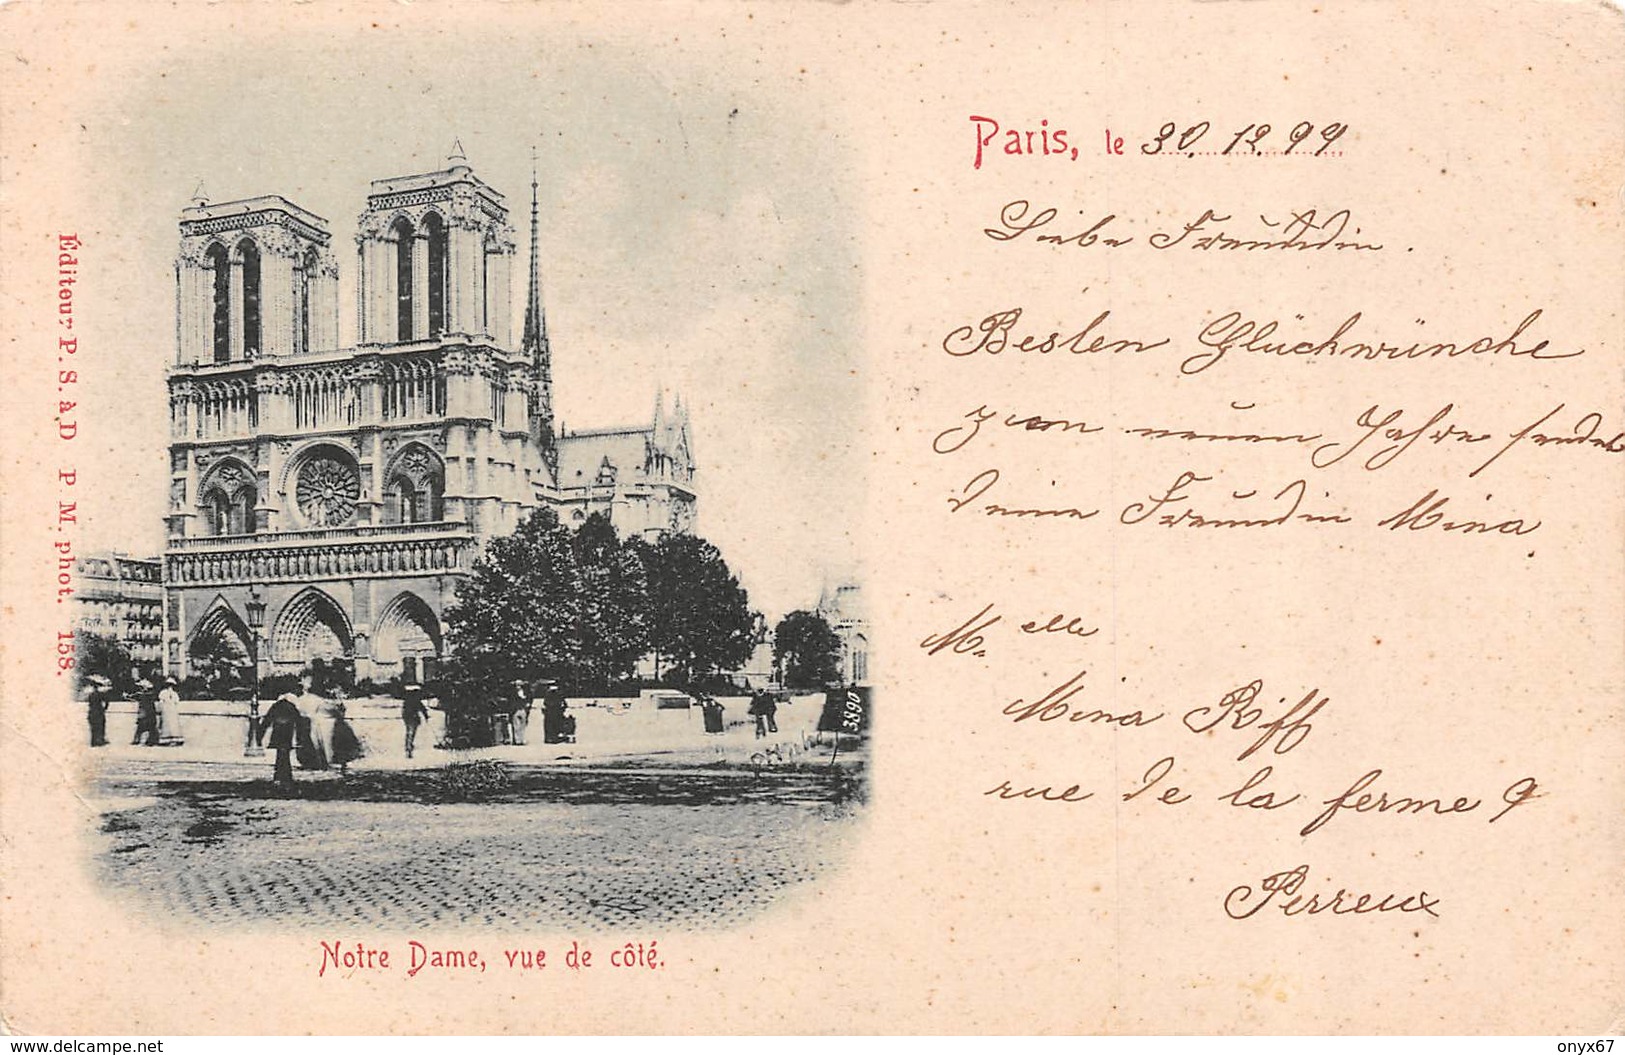 Éditeur P. S. à D P. M. phot. 158.
Paris, le 30. 12. 99
Liebe Freundin.
Besten Glückwünche
zum neuen Jahre sendet
deine Freundin Mina.
M.elle
Mina Riff
rue de la ferme 9
Perreux
3890
Notre Dame, vue de côté.
www.delcampe.net
onyx67